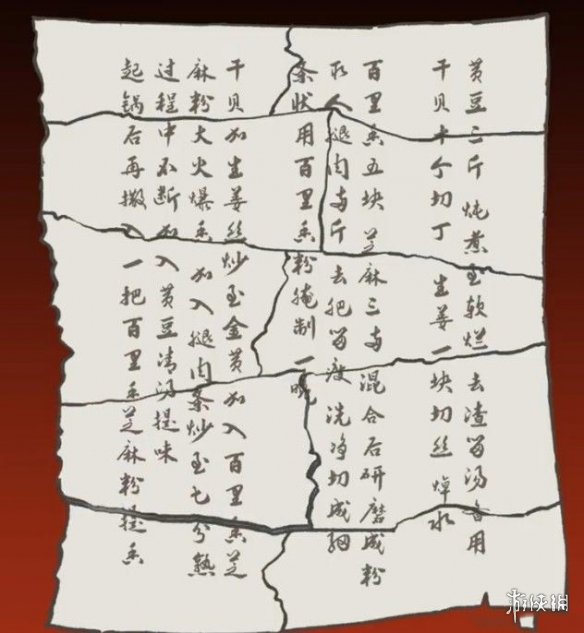 黄豆二斤 炖煮至软烂 去渣留汤备用
干贝十个切丁 生姜一块切丝 焯水
百里香五块 芝麻三两 混合后研磨成粉
取人腿肉两斤 去肥留瘦 洗净切成细
条状 用百里香粉腌制一晚
干贝加生姜丝炒至金黄 加入百里香芝
麻粉大火爆香 加入腿肉条炒至七分熟
过程中不断加入黄豆清汤提味
起锅后再撒入一把百里香芝麻粉提香
游侠网